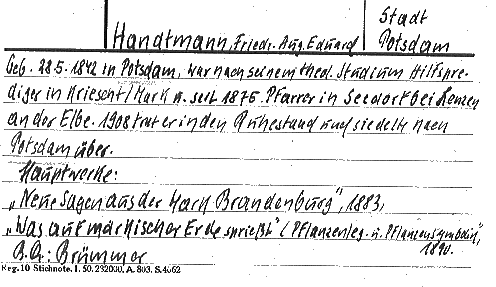 Stadt
Handtmann, Friedr. Aug. Eduard Potsdam
Geb. 28.5.1842 in Potsdam, war nach seinem theol. Studium Hilfspre-
diger in Kriescht/Mark u. seit 1875 Pfarrer in Seedorf bei Lenzen
an der Elbe. 1908 trat er in den Ruhestand und siedelte nach
Potsdam über.
Hauptwerke:
„Neue Sagen aus der Mark Brandenburg", 1883,
„Was auf märkischer Erde sprießt" (Pflanzenleg. u. Pflanzensymbolik),
1890.
B.A.: Brümmer
Reg. 10 Stichnote. I. 50. 232000. A. 803. S. 4662